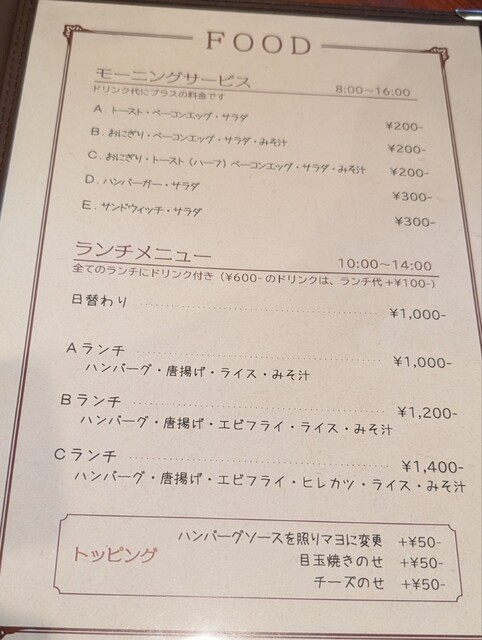 FOOD
モーニングサービス 8:00〜16:00
ドリンク代にプラスの料金です
A. トースト・ベーコンエッグ・サラダ ¥200-
B. おにぎり・ベーコンエッグ・サラダ・みそ汁 ¥200-
C. おにぎり・トースト (ハーフ) ベーコンエッグ・サラダ・みそ汁 ¥200-
D. ハンバーガー・サラダ ¥300-
E. サンドウィッチ・サラダ ¥300-
ランチメニュー 10:00〜14:00
全てのランチにドリンク付き (¥600-のドリンクは、ランチ代+¥100-)
日替わり ¥1,000-
Aランチ ¥1,000-
ハンバーグ・唐揚げ・ライス・みそ汁
Bランチ ¥1,200-
ハンバーグ・唐揚げ・エビフライ・ライス・みそ汁
Cランチ ¥1,400-
ハンバーグ・唐揚げ・エビフライ・ヒレカツ・ライス・みそ汁
トッピング
ハンバーグソースを照りマヨに変更 +¥50-
目玉焼きのせ +¥50-
チーズのせ +¥50-